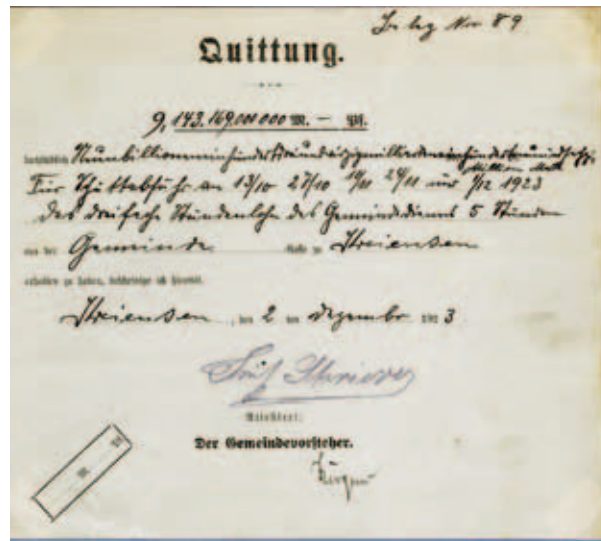 Beleg Nro 89
Quittung.
9,143.169.000 000 M. — Pf.
buchstäblich Neunbillioneneinhundertdreiundvierzigmilliardeneinhundertneunundsechzig
Million Mark
Für Schuttabfuhr am 13/10 27/10 24/11 und 1/12 1923
das dreifache Stundenlohn des Gemeindediensts 5 Stunden
aus der Gemeinde Kasse zu Kreiensen
erhalten zu haben, bescheinige ich hiermit.
Kreiensen, den 2 ten Dezember 192 3
Attestiert:
Der Gemeindevorsteher.
M. Pf.